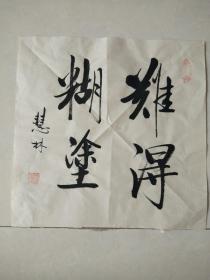 難得
糊塗
慧林